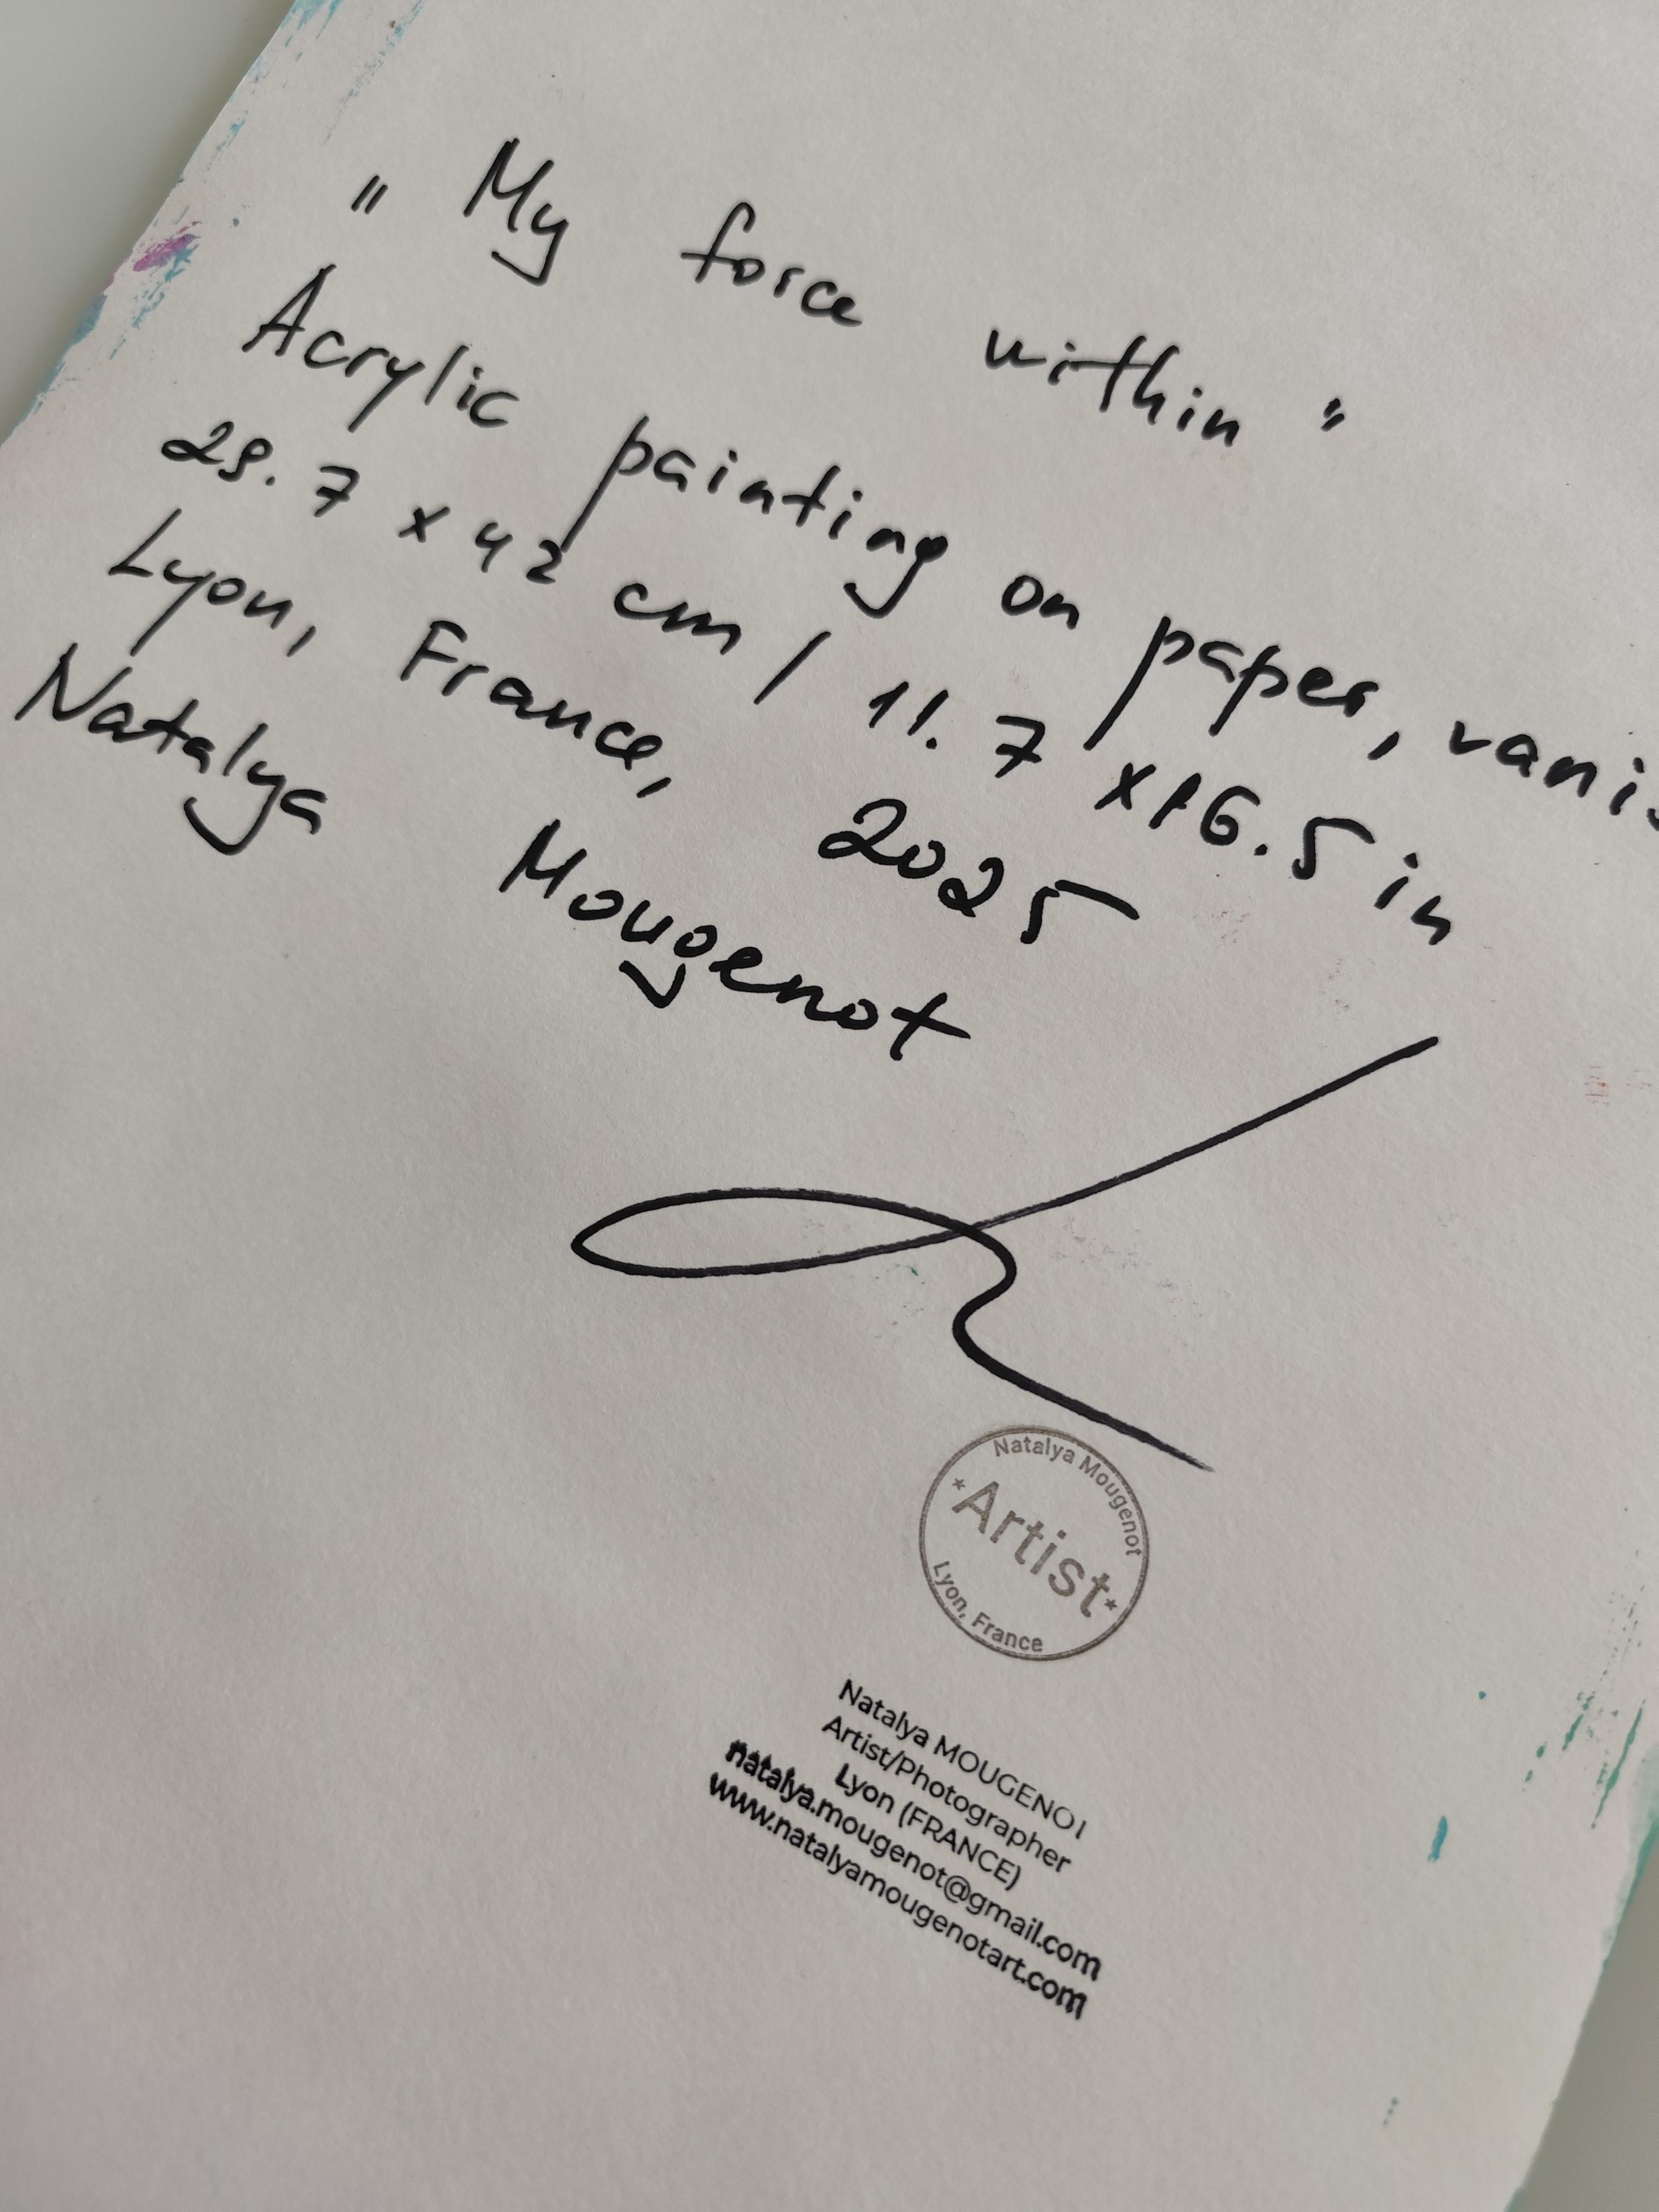 "My force within"
Acrylic painting on paper,
29.7 x 42 cm / 11.7 x 16.5 in
Lyon, France, 2025
Natalya Mougenot
Natalya Mougenot
*Artist*
Lyon, France
Natalya MOUGENOT
Artist/Photographer
Lyon (FRANCE)
natalya.mougenot@gmail.com
www.natalyamougenotart.com